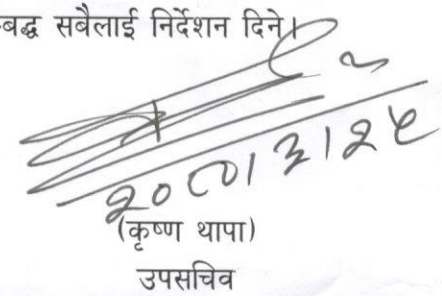 बद्ध सबैलाई निर्देशन दिने।
२०८०।३।२५
(कृष्ण थापा)
उपसचिव